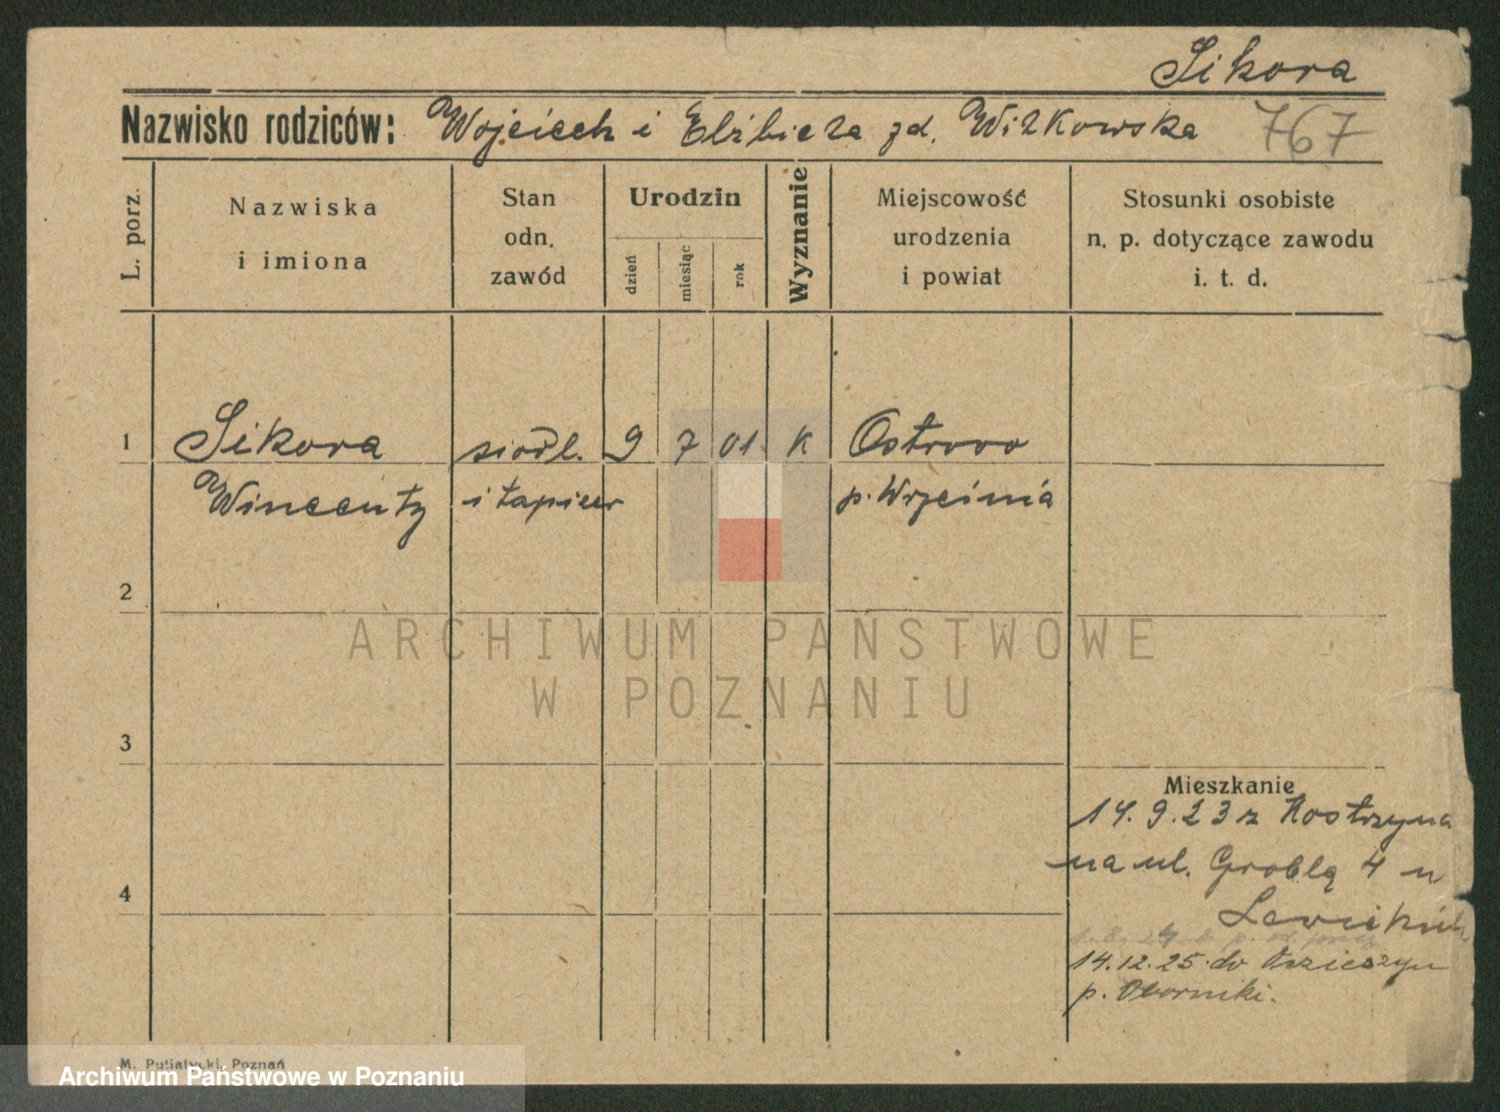 Sikora
Nazwisko rodziców: Wojciech i Elżbieta zd. Witkowska 767
L. porz.
Nazwiska
i imiona
Stan
odn.
zawód
Urodzin
dzień
miesiąc
rok
Wyznanie
Miejscowość
urodzenia
i powiat
Stosunki osobiste
n. p. dotyczące zawodu
i. t. d.
1 Sikora siodl. 9 7 01. K Ostrowo
Wincenty i tapicer p. Września
2
3
4
Mieszkanie
14.9.23 z Kostrzyna
na ul. Groblą 4 u
14.12.25 do
p. Oborniki.
M. Putiatycki, Poznań
ARCHIWUM PAŃSTWOWE
W POZNANIU
Archiwum Państwowe w Poznaniu